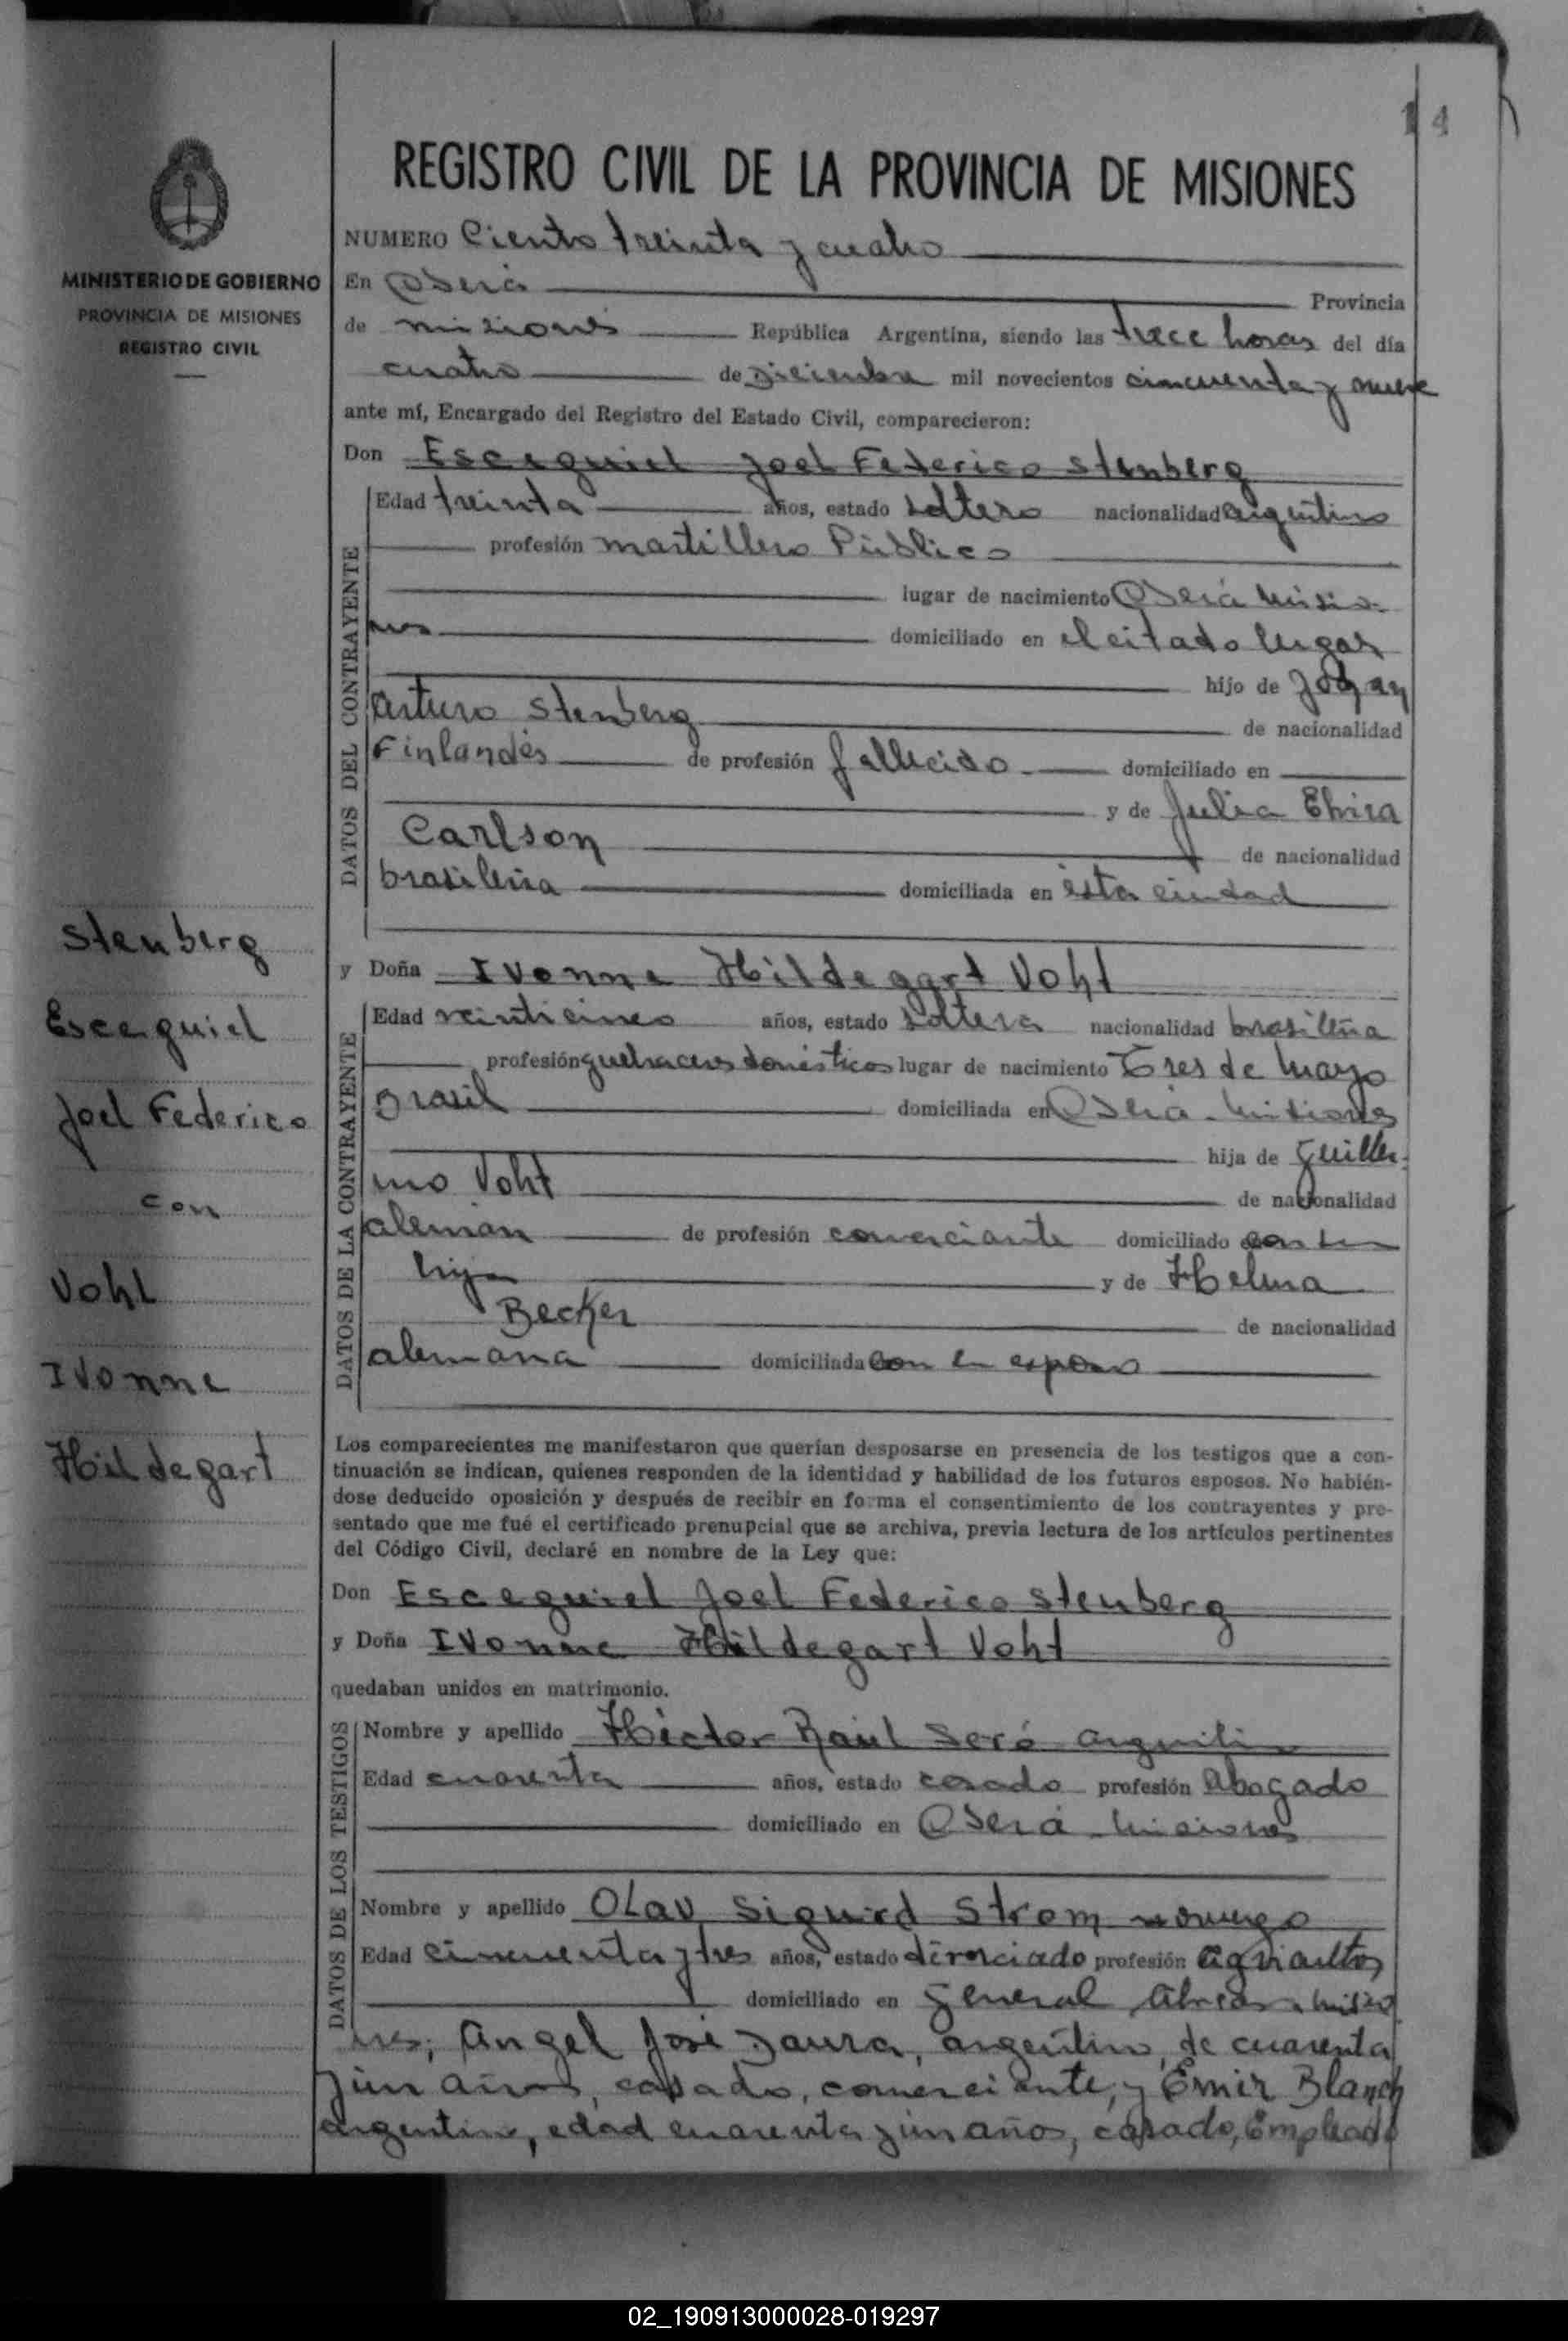 14
REGISTRO CIVIL DE LA PROVINCIA DE MISIONES
MINISTERIO DE GOBIERNO
PROVINCIA DE MISIONES
REGISTRO CIVIL
NUMERO Ciento treinta y cuatro
En Oberá Provincia
de misiones República Argentina, siendo las trece horas del día
cuatro de Diciembre mil novecientos cincuenta y nueve
ante mí, Encargado del Registro del Estado Civil, comparecieron:
Don Escequiel Joel Federico Stenberg
DATOS DEL CONTRAYENTE
Edad treinta años, estado soltero nacionalidad argentino
profesión martillero Público
lugar de nacimiento Oberá Misio-
nes domiciliado en el citado lugar
hijo de Johan
Arturo Stenberg de nacionalidad
Finlandés de profesión fallecido domiciliado en
y de Julia Elvira
Carlson de nacionalidad
brasileña domiciliada en esta ciudad
y Doña Ivonne Hildegart Voht
DATOS DE LA CONTRAYENTE
Edad veinticinco años, estado soltera nacionalidad brasileña
profesión quehaceres domésticos lugar de nacimiento Tres de Mayo
Brasil domiciliada en Oberá - Misiones
hija de Guiller-
mo Voht de nacionalidad
alemán de profesión comerciante domiciliado con su
hija y de Helma
Becker de nacionalidad
alemana domiciliada con su esposo
Los comparecientes me manifestaron que querían desposarse en presencia de los testigos que a con-
tinuación se indican, quienes responden de la identidad y habilidad de los futuros esposos. No habién-
dose deducido oposición y después de recibir en forma el consentimiento de los contrayentes y pre-
sentado que me fué el certificado prenupcial que se archiva, previa lectura de los artículos pertinentes
del Código Civil, declaré en nombre de la Ley que:
Don Escequiel Joel Federico Stenberg
y Doña Ivonne Hildegart Voht
quedaban unidos en matrimonio.
DATOS DE LOS TESTIGOS
Nombre y apellido Héctor Raúl Seró argentino
Edad cuarenta años, estado casado profesión Abogado
domiciliado en Oberá - Misiones
Nombre y apellido Olav Sigurd Strom noruego
Edad cincuenta y tres años, estado divorciado profesión agricultor
domiciliado en General Alvear, Misio
nes; Angel José Daura, argentino, de cuarenta
y un años, casado, comerciante, y Emir Blanch
argentino, edad cuarenta y un años, casado, Empleado
Stenberg
Escequiel
Joel Federico
con
Voht
Ivonne
Hildegart
02_190913000028-019297